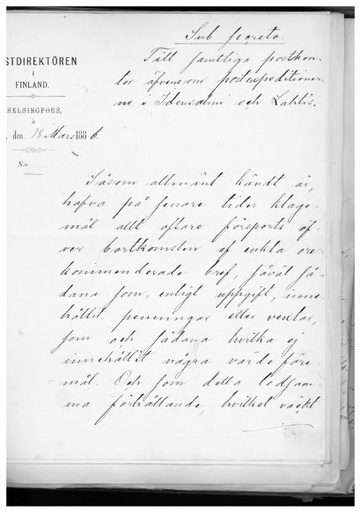 Sub secreto.
STDIREKTÖREN
i
FINLAND.
HELSINGFORS,
den 18 Mars 1886.
No
Till samtliga postkon-
tor äfvensom postexpeditioner-
na i Idensalmi och Lahtis.
Såsom allmänt kändt är,
hafva på senare tider klago-
mål allt oftare försports öf-
ver bortkomsten af enkla ore-
kommenderade bref, såväl så-
dana som, enligt uppgift, inne
hållit penningar eller vexlar,
som och sådana hvilka ej
innehållit några värde före-
mål. Och som detta
förhållande, hvilket väckt